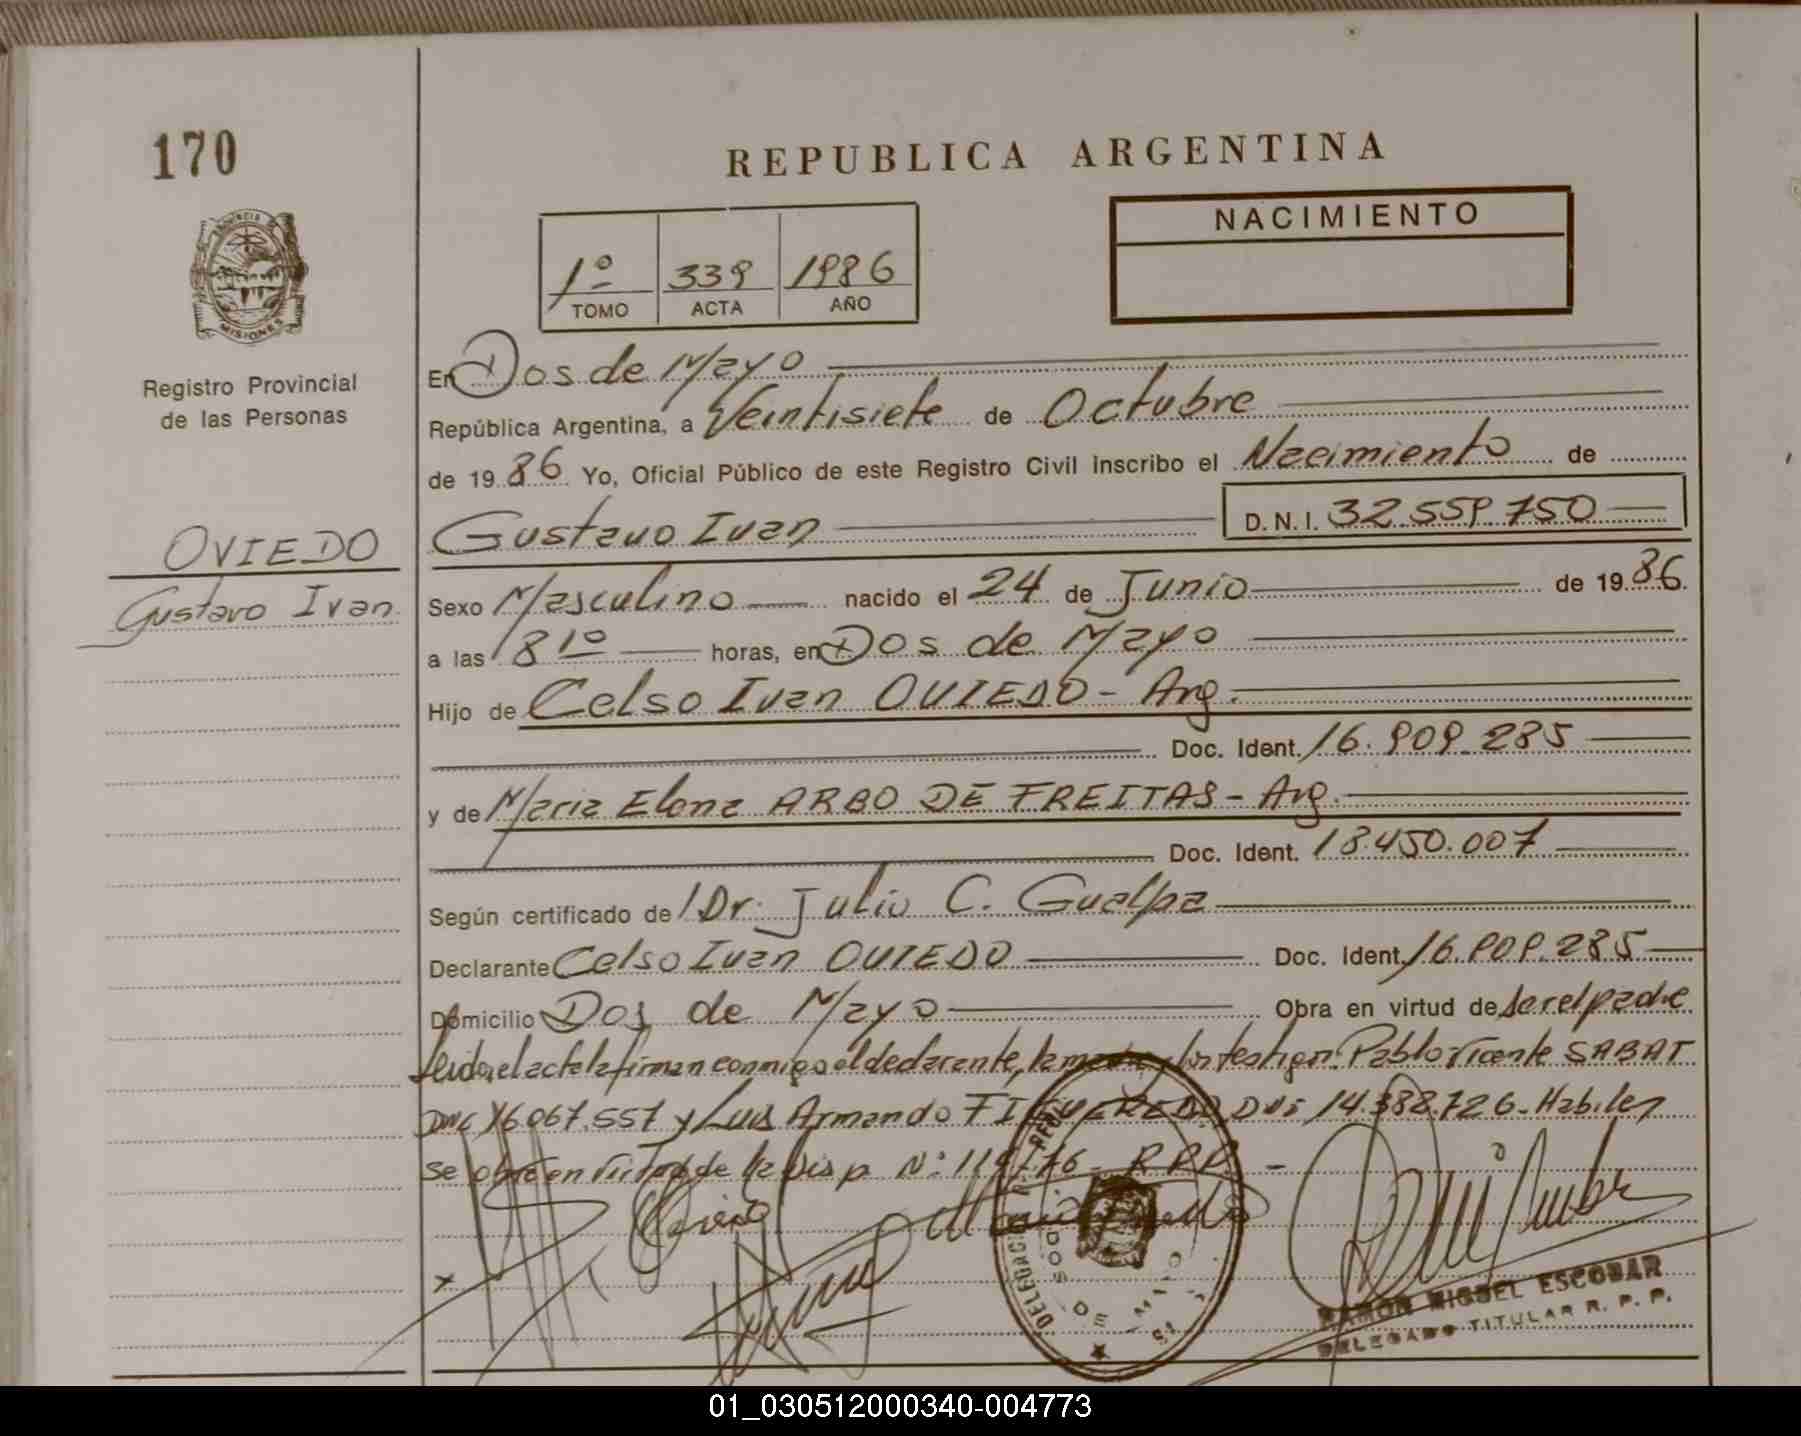 170
REPUBLICA ARGENTINA
NACIMIENTO
1º 339 1986
TOMO ACTA AÑO
PROVINCIA DE
MISIONES
Registro Provincial
de las Personas
En Dos de Mayo
República Argentina, a Veintisiete de Octubre
de 1986 Yo, Oficial Público de este Registro Civil inscribo el Nacimiento de
Gustavo Ivan D.N.I. 32.559.750
OVIEDO
Gustavo Ivan
Sexo Masculino nacido el 24 de Junio de 1986.
a las 8 1º horas, en Dos de Mayo
Hijo de Celso Ivan OVIEDO - Arg.
Doc. Ident. 16.909.285
y de Maria Elena ARBO DE FREITAS - Arg.
Doc. Ident. 18.450.007
Según certificado de Dr. Julio C. Guelpa
Declarante Celso Ivan OVIEDO Doc. Ident. 16.909.285
Domicilio Dos de Mayo Obra en virtud de ser el padre
Leida el acta la firman conmigo el declarante, la madre y los testigos: Pablo Vicente SABAT
DNI 16.067.557 y Luis Armando FIGUEREDO DNI 14.388.726 - Habiles
se obró en virtud de la Disp. Nº 119/76 - R.P.P. -
DELEGACION R. PROV.
DOS DE MAYO
RAMON MIGUEL ESCOBAR
DELEGADO TITULAR R. P. P.
01_030512000340-004773